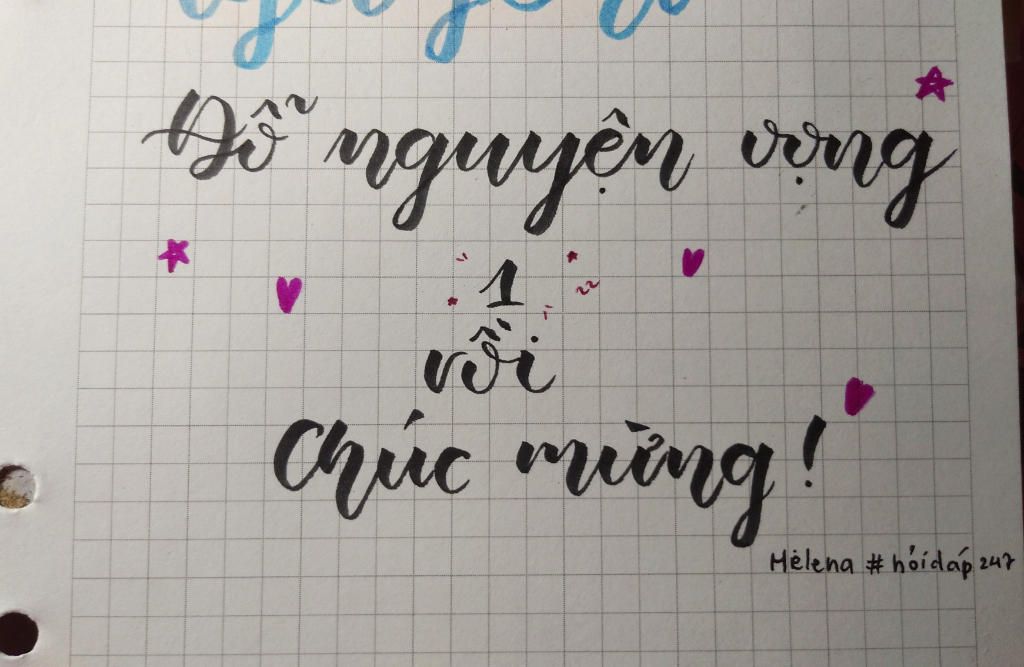 Đỗ nguyện vọng
1
rồi
Chúc mừng!
Mėlena #hỏidáp247